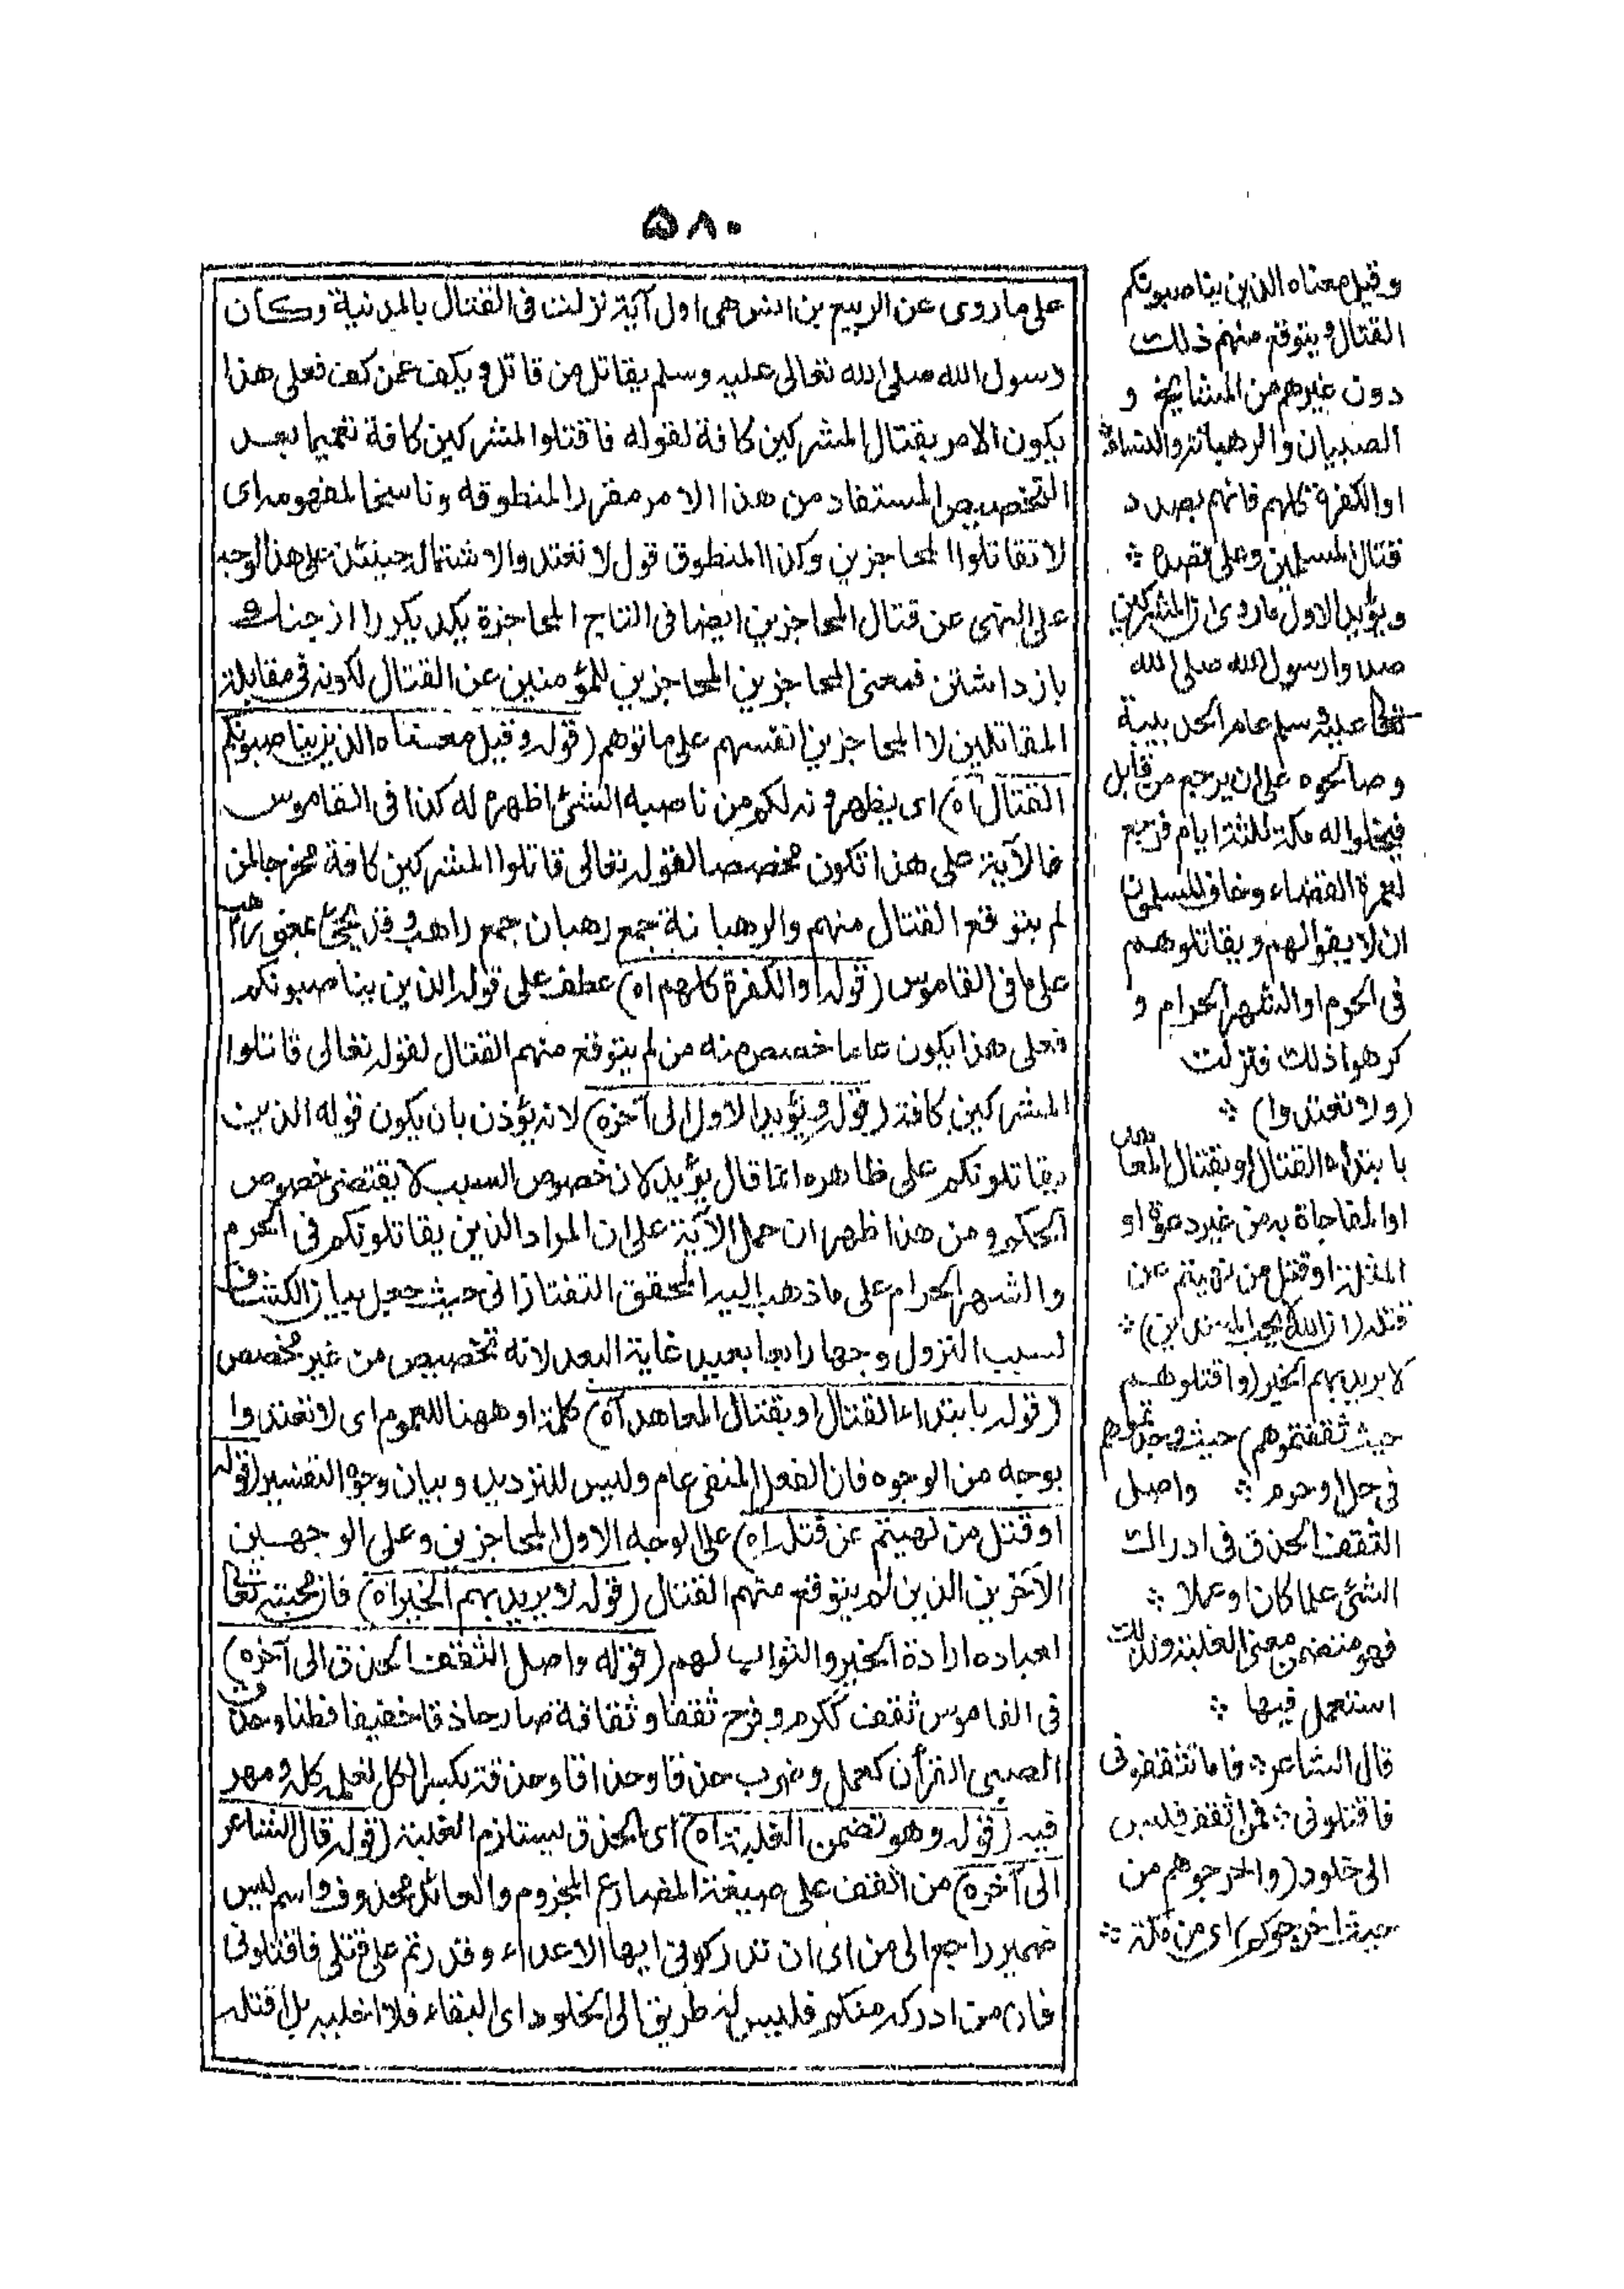 ۵۸۰
على ما روى عن الربيع بن انس هى اول آية نزلت فى القتال بالمدنية وكان
رسول الله صلى الله تعالى عليه وسلم يقاتل من قاتل ويكف عمن كف فعلى هذا
يكون الامر بقتال المشركين كافة لقوله فاقتلوا المشركين كافة تعميما بعد
التخصيص المستفاد من هذا الامر مقررا لمنطوقه وناسخا لمفهومه اى
لا تقاتلوا المحاجزين وكذا المنطوق قول لا تعتدوا الاشتمال حينئذ على هذا الوجه
على النهى عن قتال المحاجزين ايضا فى التاج المحاجزة يكديكر را از جنك
باز داشتن فمعنى المحاجزين المحاجزين للمؤمنين عن القتال لكونه فى مقابلة
المقاتلين لا المحاجزين انفسهم على ما توهم (قوله وقيل معناه الذين يناصبونكم
القتال اه) اى يظهرونه لكم من ناصبه الشئ اظهره له كذا فى القاموس
فالآية على هذا تكون مخصصا لقوله تعالى قاتلوا المشركين كافة مخرجا لمن
لم يتوقع القتال منهم والرهبانة جمع رهبان جمع راهب وقد يجئ بمعنى
على ما فى القاموس (قوله او الكفرة كلهم اه) عطف على قوله الذين يناصبونكم
فعلى هذا يكون عاما خصص منه من لم يتوقع منهم القتال لقوله تعالى قاتلوا
المشركين كافة (قوله ويؤيد الاول الى آخره) لانه يؤذن بان يكون قوله الذين
يقاتلونكم على ظاهره انما قال يؤيد لان خصوص السبب لا يقتضى خصوص
الحكم ومن هذا ظهر ان حمل الآية على ان المراد الذين يقاتلونكم فى الحرم
والشهر الحرام على ما ذهب اليه المحقق التفتازانى حيث جعل بيان الكشاف
لسبب النزول وجها رابعا بعيد غاية البعد لانه تخصيص من غير مخصص
(قوله بابتداء القتال او بقتال المعاهد اه) كلمة او ههنا للعموم اى لا تعتدوا
بوجه من الوجوه فان الفعل المنفى عام وليس للترديد وبيان وجوه التفسير (قوله
او قتل من نهيتم عن قتله اه) على الوجه الاول المحاجزين وعلى الوجهين
الآخرين الذين لم يتوقع منهم القتال (قوله لا يريد بهم الخير اه) فان محبته تعالى
لعباده ارادة الخير والثواب لهم (قوله واصل الثقف الحذق الى آخره)
فى القاموس ثقف ككرم وفرح ثقفا وثقافة صار حاذقا خفيفا فطنا وحذق
الصبى القرآن كعمل وضرب حذقا وحذاقا وحذقة بكسر الكل تعلمه كله ومهر
فيه (قوله وهو تضمن الغلبة اه) اى الحذق يستلزم الغلبة (قوله قال الشاعر
الى آخره) من اثقف على صيغة المضارع المجزوم والعائد محذوف واسم ليس
ضمير راجع الى من اى ان تدركونى ايها الاعداء وقدرتم على قتلى فاقتلونى
فان من ادركه منكم فليس له طريق الى الخلود اى البقاء فلا اغلبه بل اقتله
وقيل معناه الذين يناصبونكم
القتال ويتوقع منهم ذلك
دون غيرهم من المشايخ و
الصبيان والرهبانة والنساء
او الكفرة كلهم فانهم بصدد
قتال المسلمين وعلى قصده ÷
ويؤيد الاول ما روى ان المشركين
صدوا رسول الله صلى الله
تعالى عليه وسلم عام الحديبية
وصالحوه على ان يرجع من قابل
فيخلوا له مكة ثلثة ايام فرجع
لعمرة القضاء وخاف المسلمون
ان لا يفوا لهم ويقاتلوهم
فى الحرم او الشهر الحرام و
كرهوا ذلك فنزلت
(ولا تعتدوا) ÷
بابتداء القتال او بقتال المعاهد
او المفاجاة به من غير دعوة او
المثلة او قتل من نهيتم عن
قتله (ان الله لا يحب المعتدين) ÷
لا يريد بهم الخير (واقتلوهم
حيث ثقفتموهم) حيث وجدتموهم
فى حل او حرم ÷ واصل
الثقف الحذق فى ادراك
الشئ علما كان او عملا ÷
فهو متضمن معنى الغلبة ولذلك
استعمل فيها ÷
قال الشاعر ÷ فاما تثقفونى
فاقتلونى ÷ فمن اثقف فليس
الى خلود (واخرجوهم من
حيث اخرجوكم) اى من مكة ÷